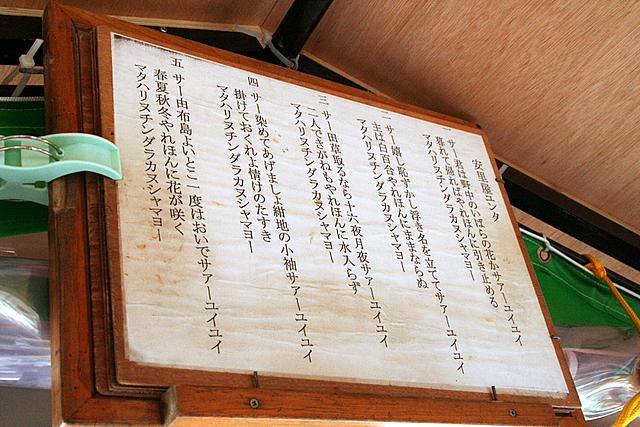 安里屋ユンタ
一 サー君は野中のいばらの花かサァーユイユイ
暮れて帰ればやれほんに引き止める
マタハリヌチンダラカヌシャマヨー
二 サー嬉し恥ずかし浮き名を立ててサァーユイユイ
主は白百合やれほんにままならぬ
マタハリヌチンダラカヌシャマヨー
三 サー田草取るなら十六夜月夜サァーユイユイ
二人できがねもやれほんに水入らず
マタハリヌチンダラカヌシャマヨー
四 サー染めてあげましょ紺地の小袖サァーユイユイ
掛けておくれよ情けのたすき
マタハリヌチンダラカヌシャマヨー
五 サー由布島よいとこ一度はおいでサァーユイユイ
春夏秋冬やれほんに花が咲く
マタハリヌチンダラカヌシャマヨー